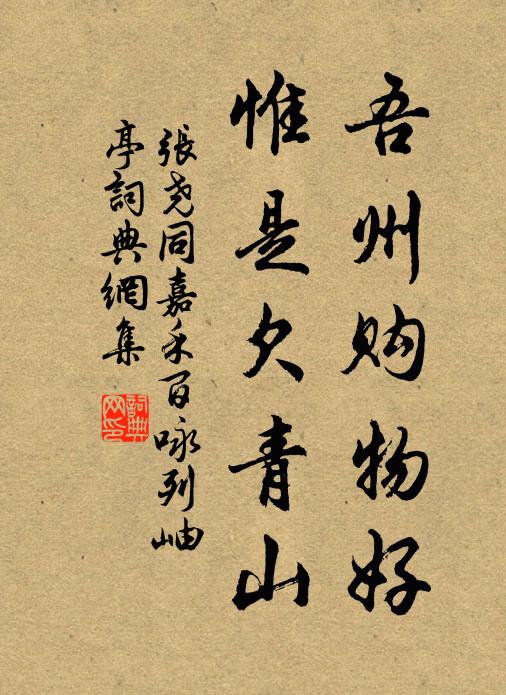 吾州购物好
惟是欠青山
張尧同嘉禾百咏列岫
亭詞典網集
詞典
网印